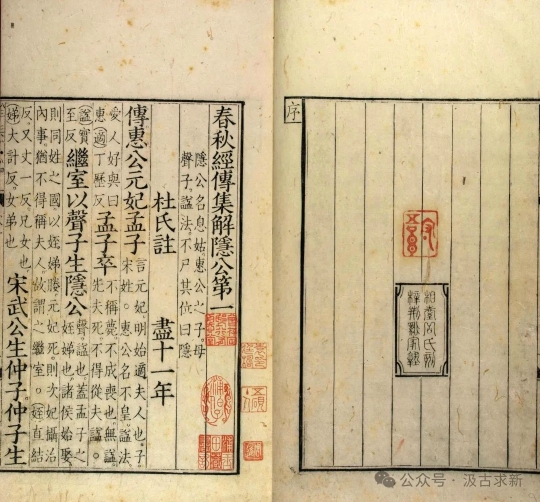 序
相臺岳氏刻
梓荆谿家塾
春秋經傳集解隱公第一
隱公名息姑惠公之子母
聲子謚法不尸其位曰隱
杜氏註 盡十一年
傳惠公元妃孟子
言元妃明始適夫人也子
宋姓。惠公名不皇謚法
愛人好與曰
惠適丁歷反
孟子卒
不稱薨不成喪也無謚
先夫死不得從夫謚。
謚實
至反
繼室以聲子生隱公
聲謚也蓋孟子之
姪娣也諸侯始娶
則同姓之國以姪娣媵元妃死則次妃攝治
内事猶不得稱夫人故謂之繼室。姪直結
反又丈一反兄女也
娣大計反女弟也
宋武公生仲子仲子生
公众号·汲古求新